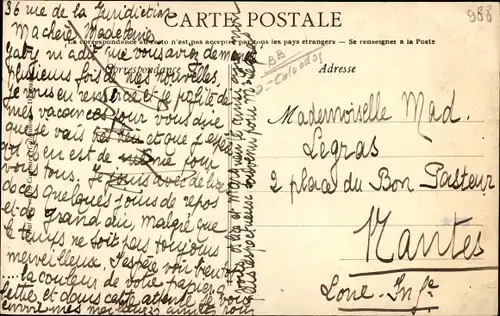 36 rue de la Juridiction
Ma chère Madeleine
CARTE POSTALE
La correspondance au recto n'est pas acceptée par tous les pays étrangers — Se renseigner à la Poste
Correspondance
Adresse
988
BB
Calvados
Gaby m'a dit que vous aviez demandé
plusieurs fois de mes nouvelles
je vous en remercie et je profite de
mes vacances pour vous dire
que je vais et que j'espère
qu'il en est de même pour
vous tous. Je
quelques jours de repos
et de grand air, malgré que
le temps ne soit pas toujours
merveilleux. J'espère voir bientôt
la couleur de votre papier à
lettre et dans cette attente je vous
envoie mes meilleures amitiés pour
Mademoiselle Mad.
Legras
2 place du Bon Pasteur
Nantes
Loire Infre